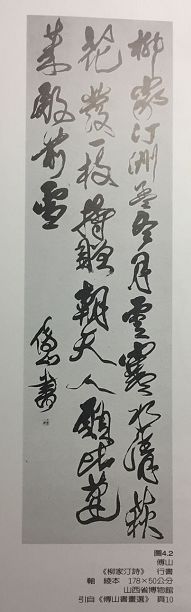 柳家汀洲孟冬月雲寒水清荻
花發一枝持贈朝天人願比蓬
萊殿前雪
傅山書
圖4.2
傅山
《柳家汀詩》 行書
軸 綾本 178×50公分
山西省博物館
引自《傅山書畫選》頁10